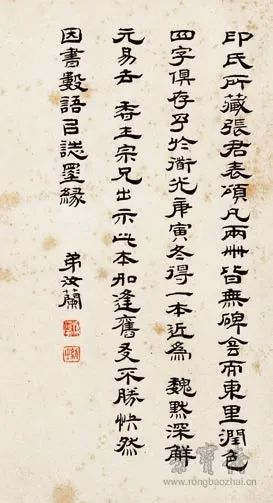 印氏所藏張君表頌凡兩冊皆無碑舍而東里潤色
四字俱存予於衡光庚寅冬得一本近為 魏默深解
元易去 香王宗兄出示此本如逢舊友不勝快然
因書數語以誌墨緣
弟汝蘭
www.rongbaozhai.cn